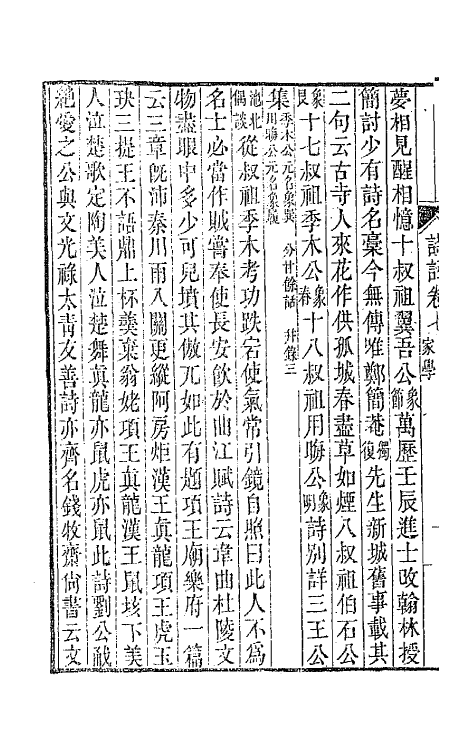 詩話卷七　家學
夢相見醒相憶十叔祖翼吾公象節萬歷壬辰進士改翰林授
簡討少有詩名稾今無傳唯鄭簡菴獨復先生新城舊事載其
二句云古寺人來花作供孤城春盡草如煙八叔祖伯石公
象艮十七叔祖季木公象春十八叔祖用晦公象明詩別詳三王公
集季木公元名象巽用晦公元名象履　分甘餘話　幷錄三
池北偶談從叔祖季木考功跌宕使氣常引鏡自照曰此人不爲
名士必當作賊嘗奉使長安飲於曲江賦詩云韋曲杜陵文
物盡眼中多少可兒墳其傲兀如此有題項王廟樂府一篇
云三章旣沛秦川雨入關更縱阿房炬漢王眞龍項王虎玉
玦三提王不語鼎上杯羹棄翁姥項王眞龍漢王鼠垓下美
人泣楚歌定陶美人泣楚舞眞龍亦鼠虎亦鼠此詩劉公㦷
絕愛之公與文光祿太青友善詩亦齊名錢牧齋尙書云文